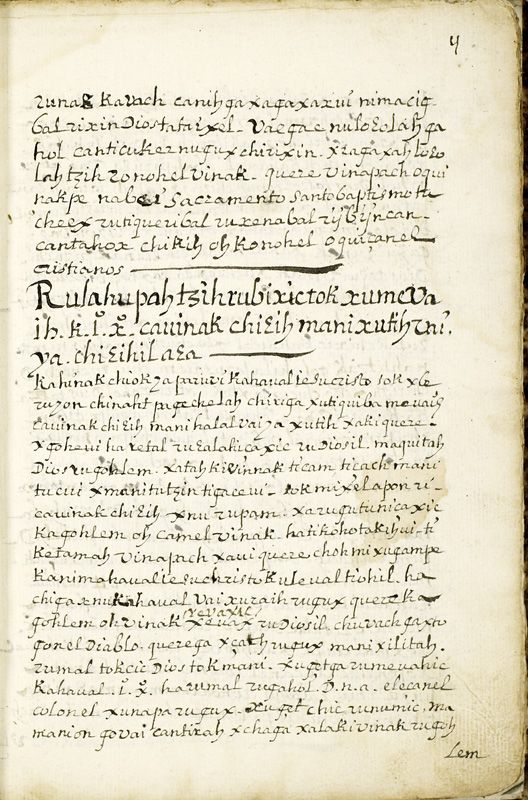 4
runa8 Kavach canihga xagaxaxui nimacig
bal rixin Dios tata ixel. Vaega e nulocolahga
hol canticuker nugux chirixin. xragaxah loco
lah tzih ronohel vinak. quere vinapach oqui
nakpe nabei sacramento santo baptismo tu
cheex rutiqueribal ruxenabal rij bijncan
cantahox chikih oh Konohel oquicanel
cristianos
Rulahupah tzih rubixic tok xumeva
ih. K. I. X. cauinak chi Eih mani xutih vai.
ya. chi Eihil a Ea
Kahinak chiok ya paruvi Kahaval iesu cristo tok xbe
ruyon chinaht pa gechelah chiriga xutiquiba mevaih
cauinak chi Eih mani halal vai ya xutih xaki quere
Dios rugohlem. xatah Ki vinnak ticam ticach mani
tucui x mani tutzin tigacevi. tok mixel apon ri
cauinak chi Eih xnu rupam. xarugutunica xic
Kagohlem oh camel vinak. hatikohotakihui. ti
Ketamah vinapach xavi quere choh mixugampe
Kanima haval iesu christo Kuleval tiohil. ha
chiga xnu Kahaval Vai xuraih rugux quere Ka
gohlem oh vinak xevax ru Diosil chuvach gaxto
gonel Diablo. querega xcah rugux mani xilitah.
rumal tokcic Dios tok mani. xugetga rumevahic
Kahaval. I. X. harumal rugahol. D. n. a. elecanel
colonel xunapa rugux. xuget chic runumic, ma
mani on go vai cantirah xchaga xalaki vinak rugoh
lem